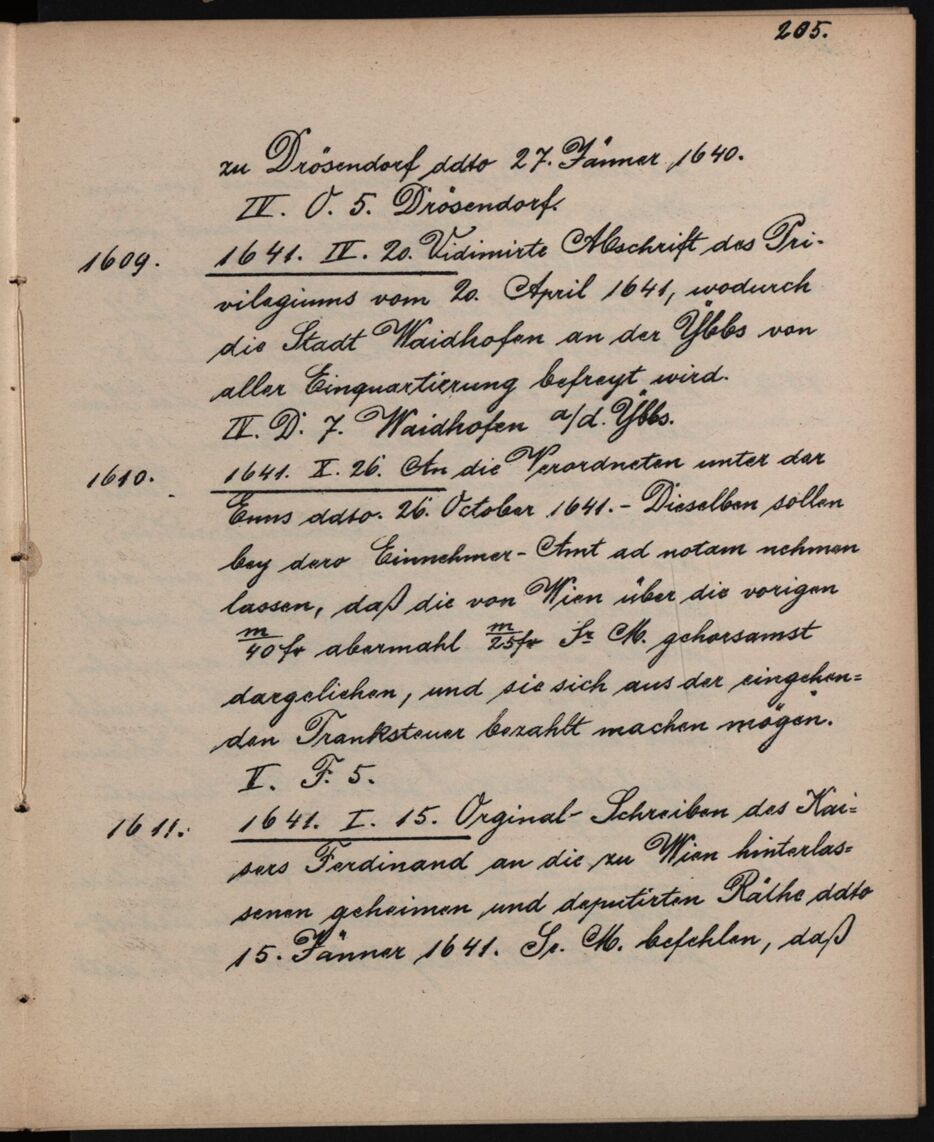 205.
zu Drösendorf ddto 27. Jänner 1640.
IV. O. 5. Drösendorf.
1609. 1641. IV. 20. Vidimirte Abschrift des Pri-
vilegiums vom 20. April 1641, wodurch
die Stadt Waidhofen an der Ybbs von
aller Einquartierung befreyt wird.
IV. D. 7. Waidhofen a/d. Ybbs.
1610. 1641. X. 26. An die Verordneten unter der
Enns ddto. 26. October 1641. - Dieselben sollen
bey dero Einnehmer-Amt ad notam nehmen
lassen, daß die von Wien über die vorigen
m/40 fr abermahl m/25 fr Sr M. gehorsamst
dargeliehen, und sie sich aus der eingehen=
den Tranksteuer bezahlt machen mögen.
V. F. 5.
1611. 1641. I. 15. Orginal-Schreiben des Kai=
sers Ferdinand an die zu Wien hinterlas=
senen geheimen und deputirten Räthe ddto
15. Jänner 1641. Sr. M. befehlen, daß